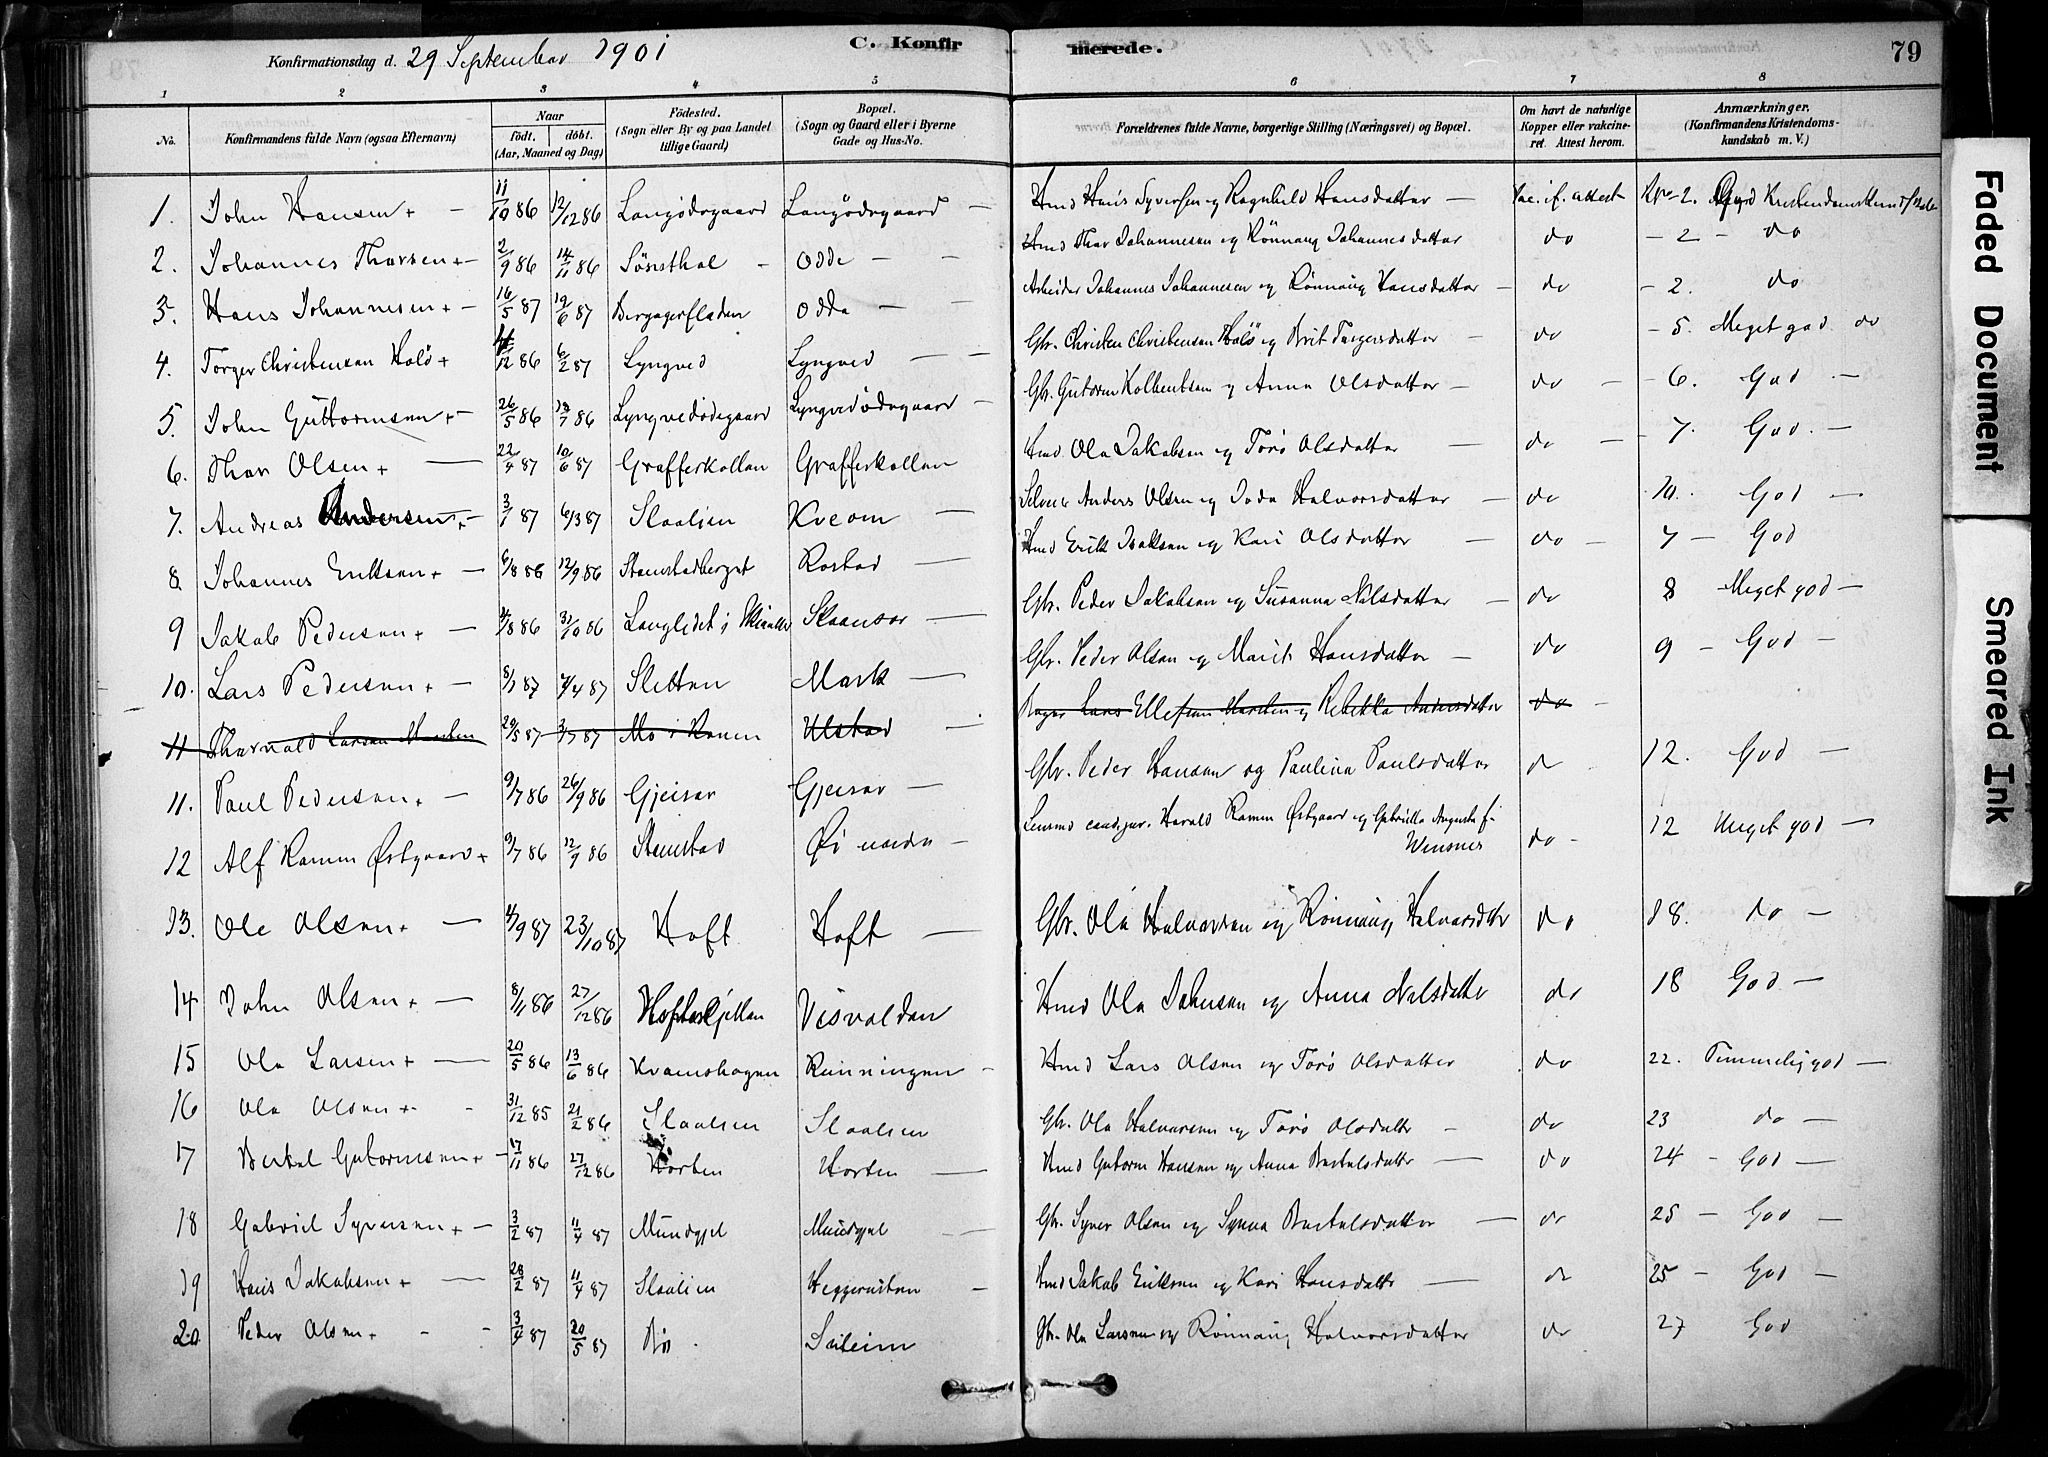 Konfirmationsdag d. 29 September 1901
C. Konfirmerede.
79
1 2 3 4 5 6 7 8
No.
Konfirmandens fulde Navn (ogsaa Efternavn)
Naar
födt. döbt.
(Aar, Maaned og Dag)
Födested.
(Sogn eller By og paa Landet
tillige Gaard)
Bopæl.
(Sogn og Gaard eller i Byerne
Gade og Hus-No.
Forældrenes fulde Navne, borgerlige Stilling (Næringsvei) og Bopæl.
Om havt de naturlige
Kopper eller vakcine-
ret. Attest herom.
Anmærkninger.
(Konfirmandens Kristendoms-
kundskab m. V.)
1. John Hansen + — 11/10 86 12/12 86 Langödegaard Langödegaard — Hmd Hans Syversen og Ragnhild Hansdatter — Vac. if. attest No 2. God Kristendomskundskab
2. Johannes Thorsen + — 2/9 86 14/11 86 Sönsthal Odde — Hmd Thor Johannesen og Rönnaug Johannesdatter do — 2 — do
3. Hans Johannesen + — 16/5 87 19/6 87 Bergagerfladen Odda — Arbeider Johannes Johannesen og Rönnaug Hansdatter — do — 2. do
4. Torger Christensen Holö + /12 86 6/2 87 Lyngved Lyngved — Gbr. Christen Christensen Holö og Brit Torgersdatter — do — 5. Meget god do
5. John Guttormsen + — 26/5 86 /7 86 Lyngvedödegaard Lyngvedödegaard — Gbr. Gutorm Kolbentsen og Anna Olsdatter — do — 6. God —
6. Thor Olsen + — 22/4 87 10/6 87 Grafferkollen Grafferkollen Hmd Ola Jakobsen og Torö Olsdatter — do — 7. God —
7. Andreas Andersen + — 3/1 87 6/3 87 Slaalien Kveom — Anders Olsen og Halvorsdatter — do 10. God —
8 Johannes Eriksen + — 6/8 86 12/9 86 Stamstadberget Rostad — Hmd Erik Isaksen og Kari Olsdatter — do — 7 — God
9 Jakob Pedersen + — /8 86 31/10 86 Langledet i Skiaker Skansar — Gbr. Peder Jakobsen og Susanna Nilsdatter — do 8 Meget god —
10. Lars Pedersen + — 8/1 87 /4 87 Sletten Mork — Gbr. Peder Olsen og Marit Hansdatter — do 9 — God —
11 Thorvald Larsen 29/5 87 3/7 87 Mo i Ranen Ulstad — Lars Ellefsen og Rebekka Andersdatter do —
11. Paul Pedersen + — 9/7 86 26/9 86 Gjeisar Gjeisar — Gbr. Peder Hansen og Paulina Paulsdatter do 12. God —
12 Alf Ramm Østgaard + 9/7 86 12/9 86 Stamstad Øi nedre — Lensmd cand. jur. Harald Ramm Østgaard og Gabriella Augusta f. do — 12 Meget god —
Wensnes
13. Ole Olsen + — 4/9 87 23/10 87 Hoft Hoft — Gbr. Ola Halvorsen og Rönnaug Halvorsdtr do 18. do —
14 John Olsen + — 8/11 86 27/12 86 Visvoldan Hmd Ola Johnsen og Anna Nilsdatter do 18 God —
15 Ola Larsen + — 20/5 86 13/6 86 Kramshagen Runningen — Hmd Lars Olsen og Torö Olsdatter do 22. Temmelig god —
16 Ola Olsen + — 31/12 85 21/2 86 Slaalien Slaalien Gbr. Ola Halvorsen og Torö Olsdatter — do 23 do —
17 Bertel Gutormsen + — 17/11 86 27/12 86 Horten Horten — Hmd Gutorm Hansen og Anna Bertelsdatter — do 24 — God —
18 Gabriel Syversen + — 3/2 87 11/4 87 Mundgjel Mundgjel — Gbr. Syver Olsen og Synva Bertelsdatter — do 25 — God —
19 Hans Jakobsen + — 28/2 87 11/4 87 Slaalien Heggerusten — Hmd Jakob Eriksen og Kari Hansdatter — do 25 — God —
20 Peder Olsen + — 3/4 87 20/5 87 Bö Sülheim Gbr. Ola Larsen og Rönnaug Halvorsdatter do 27 God
Faded Document
Smeared Ink